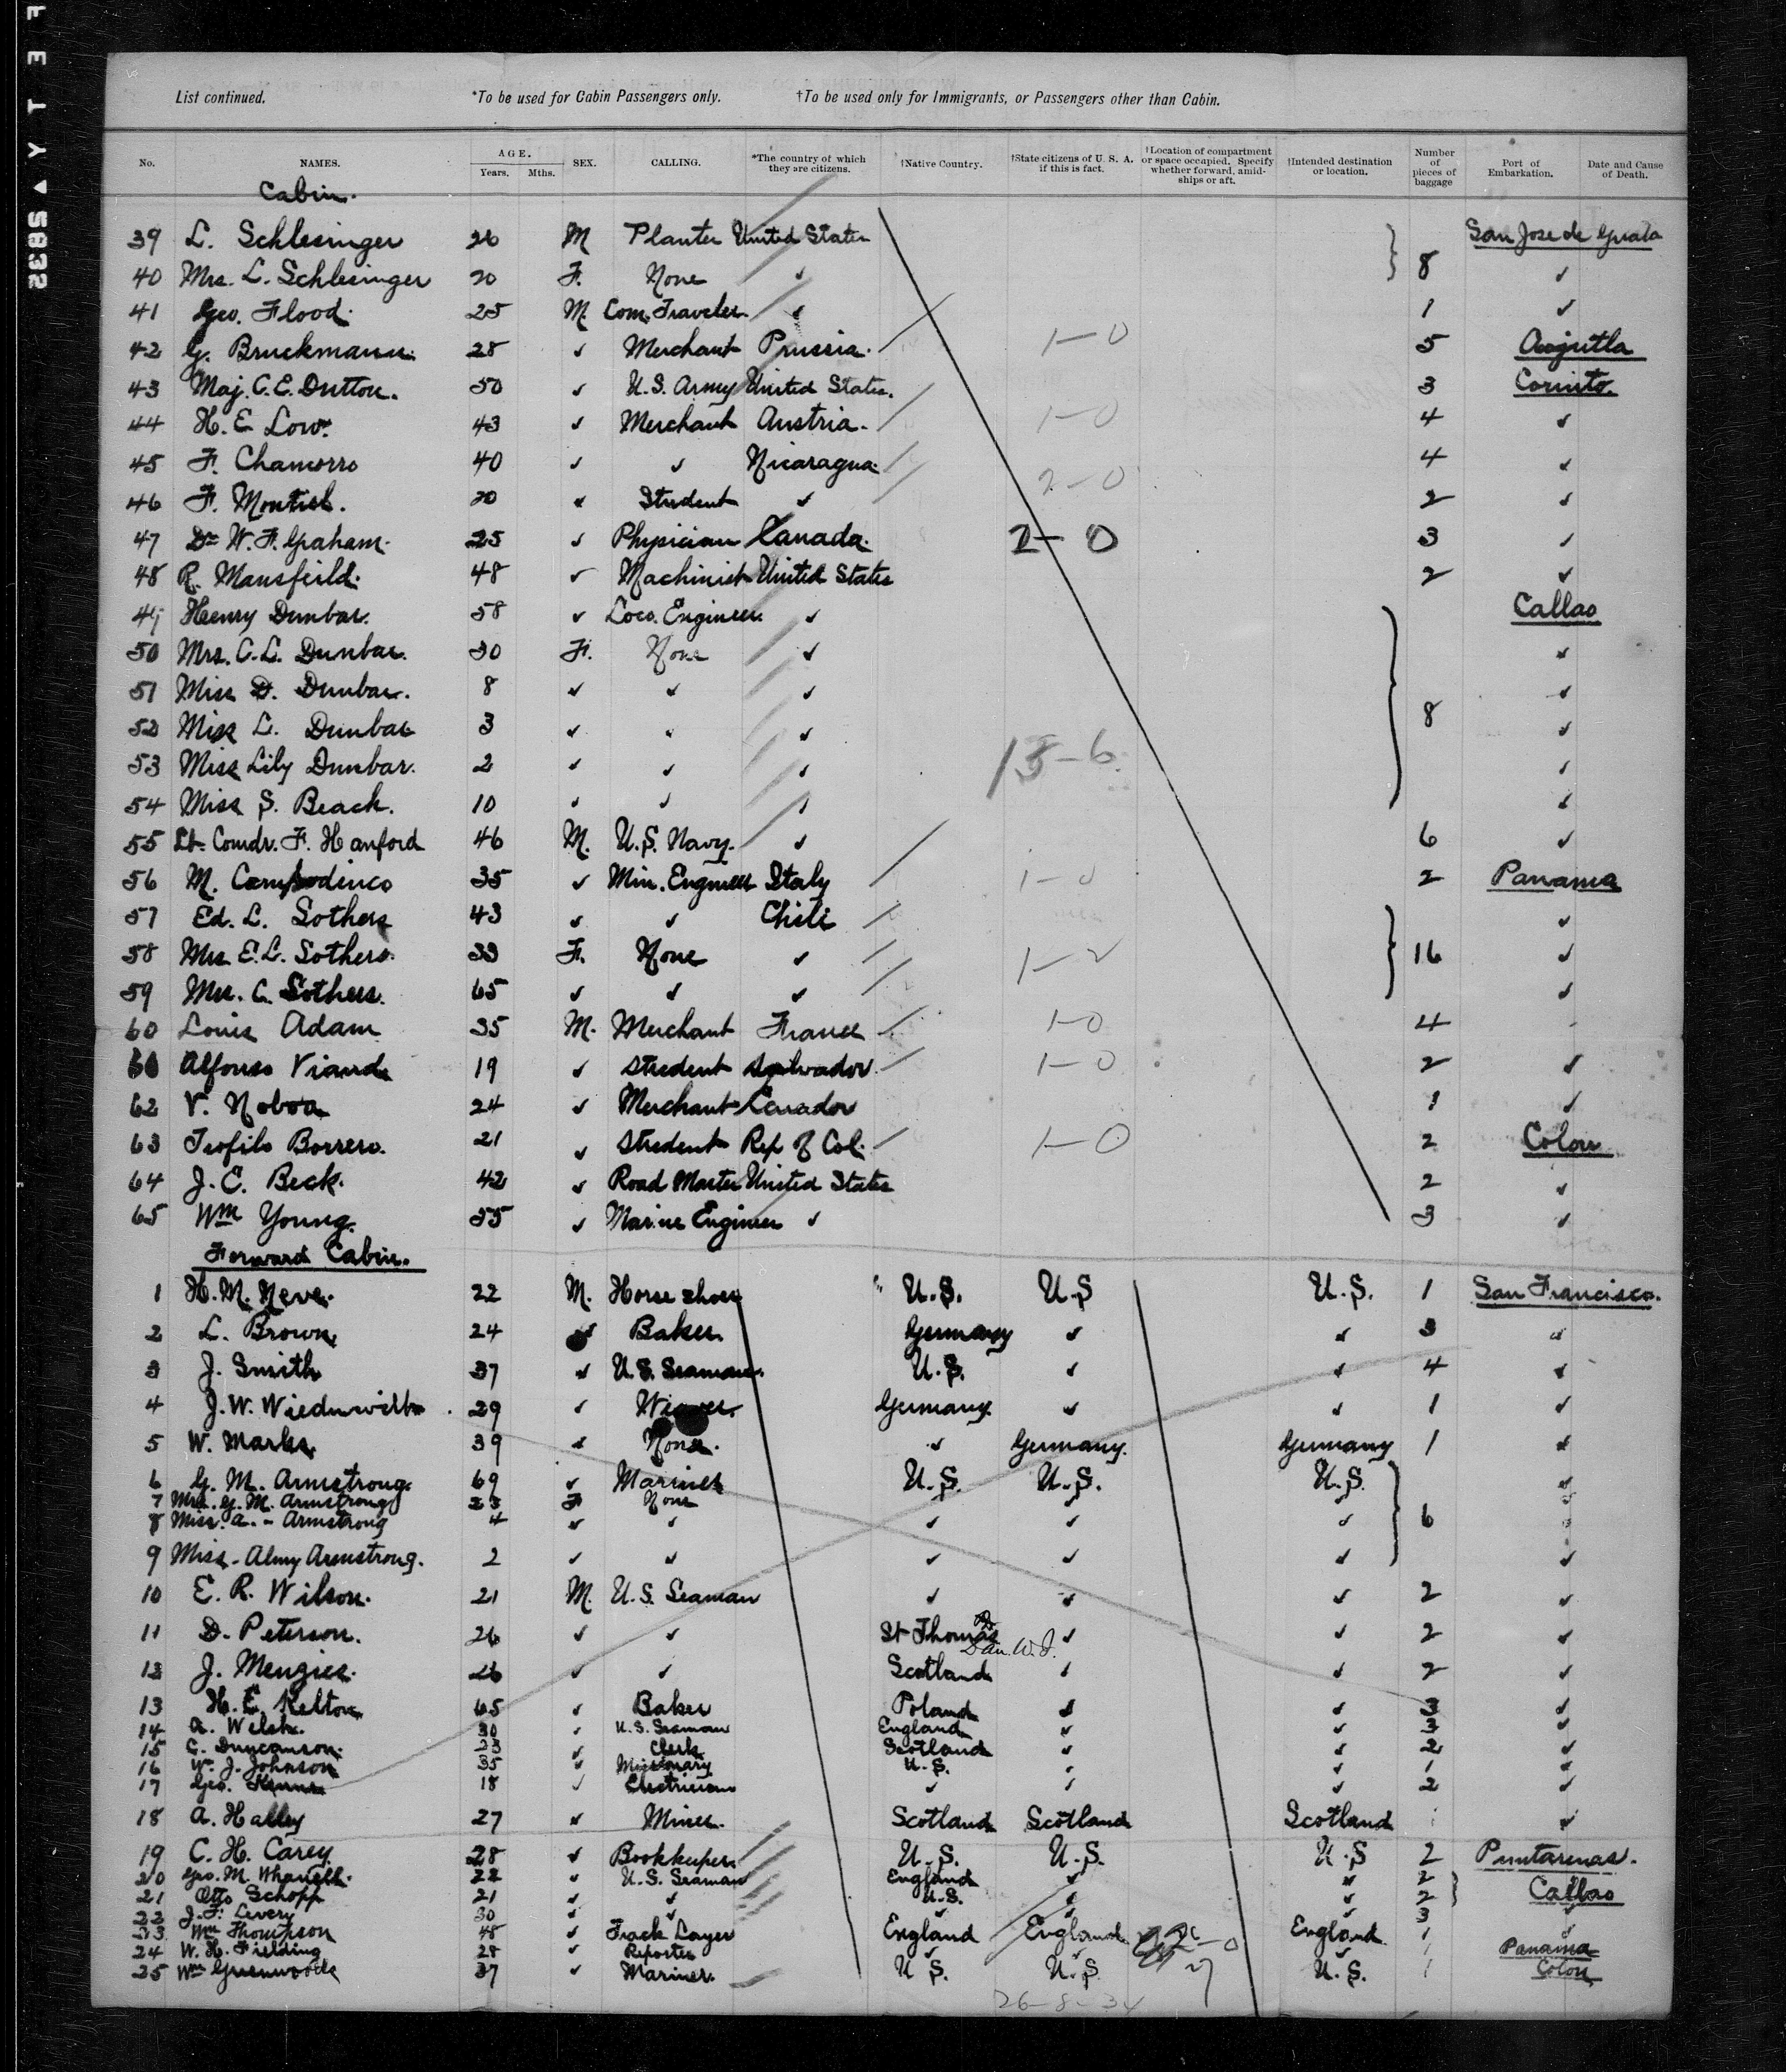 List continued. *To be used for Cabin Passengers only. †To be used only for Immigrants, or Passengers other than Cabin.
No. NAMES. AGE. Years. Mths. SEX. CALLING. *The country of which they are citizens. †Native Country. †State citizens of U. S. A. if this is fact. †Location of compartment or space occupied. Specify whether forward, amidships or aft. †Intended destination or location. Number of pieces of baggage Port of Embarkation. Date and Cause of Death.
Cabin.
39 L. Schlesinger 26 M Planter United States San Jose de Guata
40 Mrs. L. Schlesinger 20 F. None ✓ 8 ✓
41 Geo. Flood. 25 M. Com. Traveler ✓ 1 ✓
42 G. Bruckmann. 28 ✓ Merchant Prussia. 1-0 5 Acajutla
43 Maj. C. E. Dutton. 50 ✓ U.S. Army United States. 3 Corinto.
44 H. E. Low. 43 ✓ Merchant Austria. 1-0 4 ✓
45 F. Chamorro 40 ✓ ✓ Nicaragua. 4 ✓
46 F. Montiel. 20 ✓ Student ✓ 2-0 2 ✓
47 Dr W. F. Graham. 25 ✓ Physician Canada. 2-0 3 ✓
48 R. Mansfeild. 48 ✓ Machinist United States 2 ✓
49 Henry Dunbar. 58 ✓ Loco. Engineer. ✓ Callao
50 Mrs. C. L. Dunbar. 30 F. None ✓ ✓
51 Miss D. Dunbar. 8 ✓ ✓ ✓ ✓
52 Miss L. Dunbar 3 ✓ ✓ ✓ 8 ✓
53 Miss Lily Dunbar. 2 ✓ ✓ ✓ 13-6 ✓
54 Miss S. Beach. 10 ✓ ✓ ✓ ✓
55 Lt. Comdr. F. Hanford 46 M. U.S. Navy. ✓ 6 ✓
56 M. Campodinco 35 ✓ Min. Engineer Italy 1-0 2 Panama
57 Ed. L. Sothers 43 ✓ ✓ Chili ✓
58 Mrs E. L. Sothers. 33 F. None ✓ 1-2 16 ✓
59 Mrs. C. Sothers. 65 ✓ ✓ ✓ ✓
60 Louis Adam 35 M. Merchant France 1-0 4
61 Alfonso Viaud 19 ✓ Student Salvador. 1-0 2 ✓
62 V. Noboa 24 ✓ Merchant Ecuador 1 ✓
63 Teofilo Borrero. 21 ✓ Student Rep of Col. 1-0 2 Colon
64 J. E. Beck. 42 ✓ Road Master United States 2 ✓
65 Wm Young. 55 ✓ Marine Engineer ✓ 3 ✓
Forward Cabin.
1 H. M. Neve. 22 M. Horse shoer " U.S. U.S U.S. 1 San Francisco.
2 L. Brown. 24 ✓ Baker. Germany ✓ ✓ 3 ✓
3 J. Smith 37 ✓ U.S. Seaman. U.S. ✓ ✓ 4 ✓
4 J. W. 29 ✓ Germany ✓ ✓ 1 ✓
5 W. Marks. 39 ✓ None. ✓ Germany. Germany 1 ✓
6 G. M. Armstrong. 69 ✓ Mariner U.S. U.S. U.S. ✓
7 Mrs. G. M. Armstrong 23 F None
8 Miss. A. - Armstrong 4 ✓ ✓ ✓ ✓ ✓ 6
9 Miss - Almy Armstrong. 2 ✓ ✓ ✓ ✓ ✓ ✓
10 E. R. Wilson. 21 M. U.S. Seaman ✓ ✓ ✓ 2 ✓
11 D. Peterson. 26 ✓ ✓ St Thomas Dan. W.I. ✓ ✓ 2 ✓
12 J. Menzies. 26 ✓ ✓ Scotland ✓ ✓ 2 ✓
13 H. E. Kelton 65 ✓ Baker Poland ✓ ✓ 3 ✓
14 A. Welsh. 30 ✓ U.S. Seaman England ✓ ✓ 3 ✓
15 C. Duncanson. 23 ✓ Clerk Scotland ✓ ✓ 2 ✓
16 Wm. J. Johnson 35 ✓ Missionary U.S. ✓ ✓ 1 ✓
17 Geo. 18 ✓ Electrician ✓ ✓ ✓ 2 ✓
18 A. Halley 27 ✓ Miner. Scotland Scotland Scotland 1 ✓
19 C. H. Carey. 28 ✓ Bookkeeper U.S. U.S. U.S 2 Puntarenas.
20 Geo. M. 22 ✓ U.S. Seaman England ✓ ✓ 2
21 Otto Schopp 21 ✓ ✓ U.S. ✓ ✓ 2 Callao
22 J. F. Levery 30 ✓ ✓ ✓ ✓ ✓ 3 ✓
23 Wm Thompson 48 ✓ Track Layer England England England. 1 ✓
24 W. H. Fielding 28 ✓ Reporter ✓ ✓ ✓ 1 Panama
25 Wm Greenwoods 37 ✓ Mariner. U S. U.S. U.S. 1 Colon
26-8-34